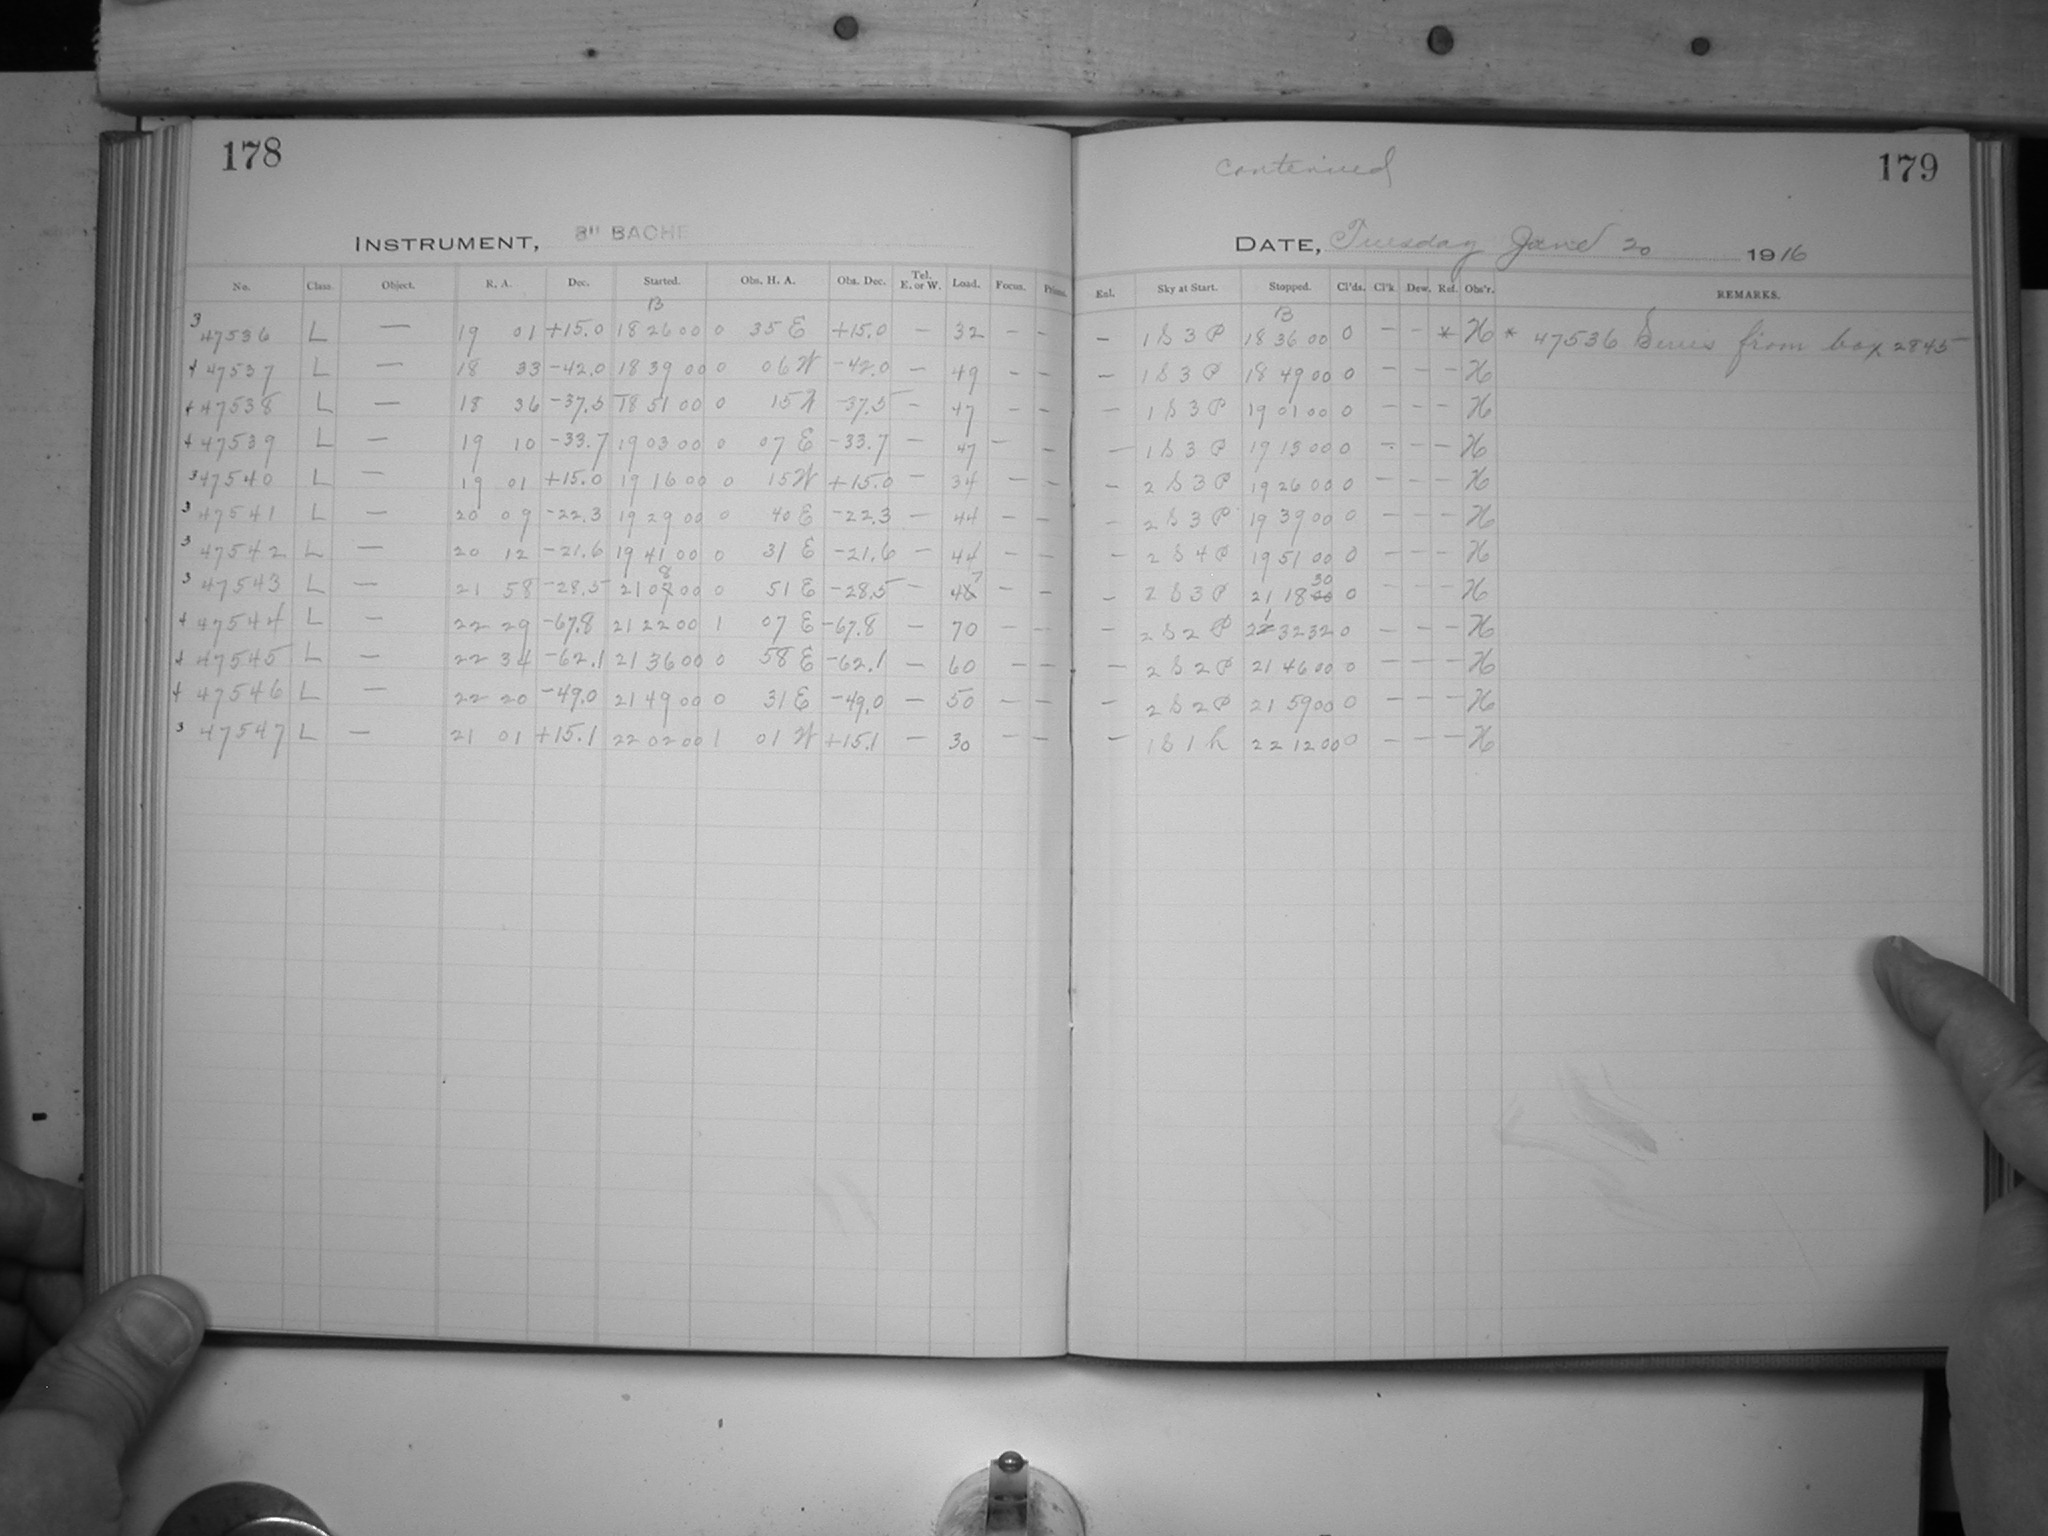 178
INSTRUMENT, 8" BACHE
No. Class. Object. R. A. Dec. Started. Obs. H. A. Obs. Dec. Tel. E. or W. Load. Focus. Prisms.
B
3 47536 L — 19 01 +15.0 18 26 00 0 35 E +15.0 — 32 — —
4 47537 L — 18 33 -42.0 18 39 00 0 06 W -42.0 — 49 — —
4 47538 L — 18 36 -37.5 18 51 00 0 15 W -37.5 — 47 — —
4 47539 L — 19 10 -33.7 19 03 00 0 07 E -33.7 — 47 — —
3 47540 L — 19 01 +15.0 19 16 00 0 15 W +15.0 — 34 — —
3 47541 L — 20 09 -22.3 19 29 00 0 40 E -22.3 — 44 — —
3 47542 L — 20 12 -21.6 19 41 00 0 31 E -21.6 — 44 — —
3 47543 L — 21 58 -28.5 21 08 00 0 51 E -28.5 — 47 — —
4 47544 L — 22 29 -67.8 21 22 00 1 07 E -67.8 — 70 — —
4 47545 L — 22 34 -62.1 21 36 00 0 58 E -62.1 — 60 — —
4 47546 L — 22 20 -49.0 21 49 00 0 31 E -49.0 — 50 — —
3 47547 L — 21 01 +15.1 22 02 00 1 01 W +15.1 — 30 — —
continued
179
DATE, Tuesday June 20 1916
Eul. Sky at Start. Stopped. Cl'ds. Cl'k. Dew. Ref. Obs'r. REMARKS.
B
— 1 S 3 P 18 36 00 0 — — * H * 47536 Series from box 2845
— 1 S 3 P 18 49 00 0 — — — H
— 1 S 3 P 19 01 00 0 — — — H
— 1 S 3 P 19 13 00 0 — — — H
— 2 S 3 P 19 26 00 0 — — — H
— 2 S 3 P 19 39 00 0 — — — H
— 2 S 4 P 19 51 00 0 — — — H
— 2 S 3 P 21 18 30 0 — — — H
— 2 S 2 P 21 32 32 0 — — — H
— 2 S 2 P 21 46 00 0 — — — H
— 2 S 2 P 21 59 00 0 — — — H
— 1 S 1 h 22 12 00 0 — — — H